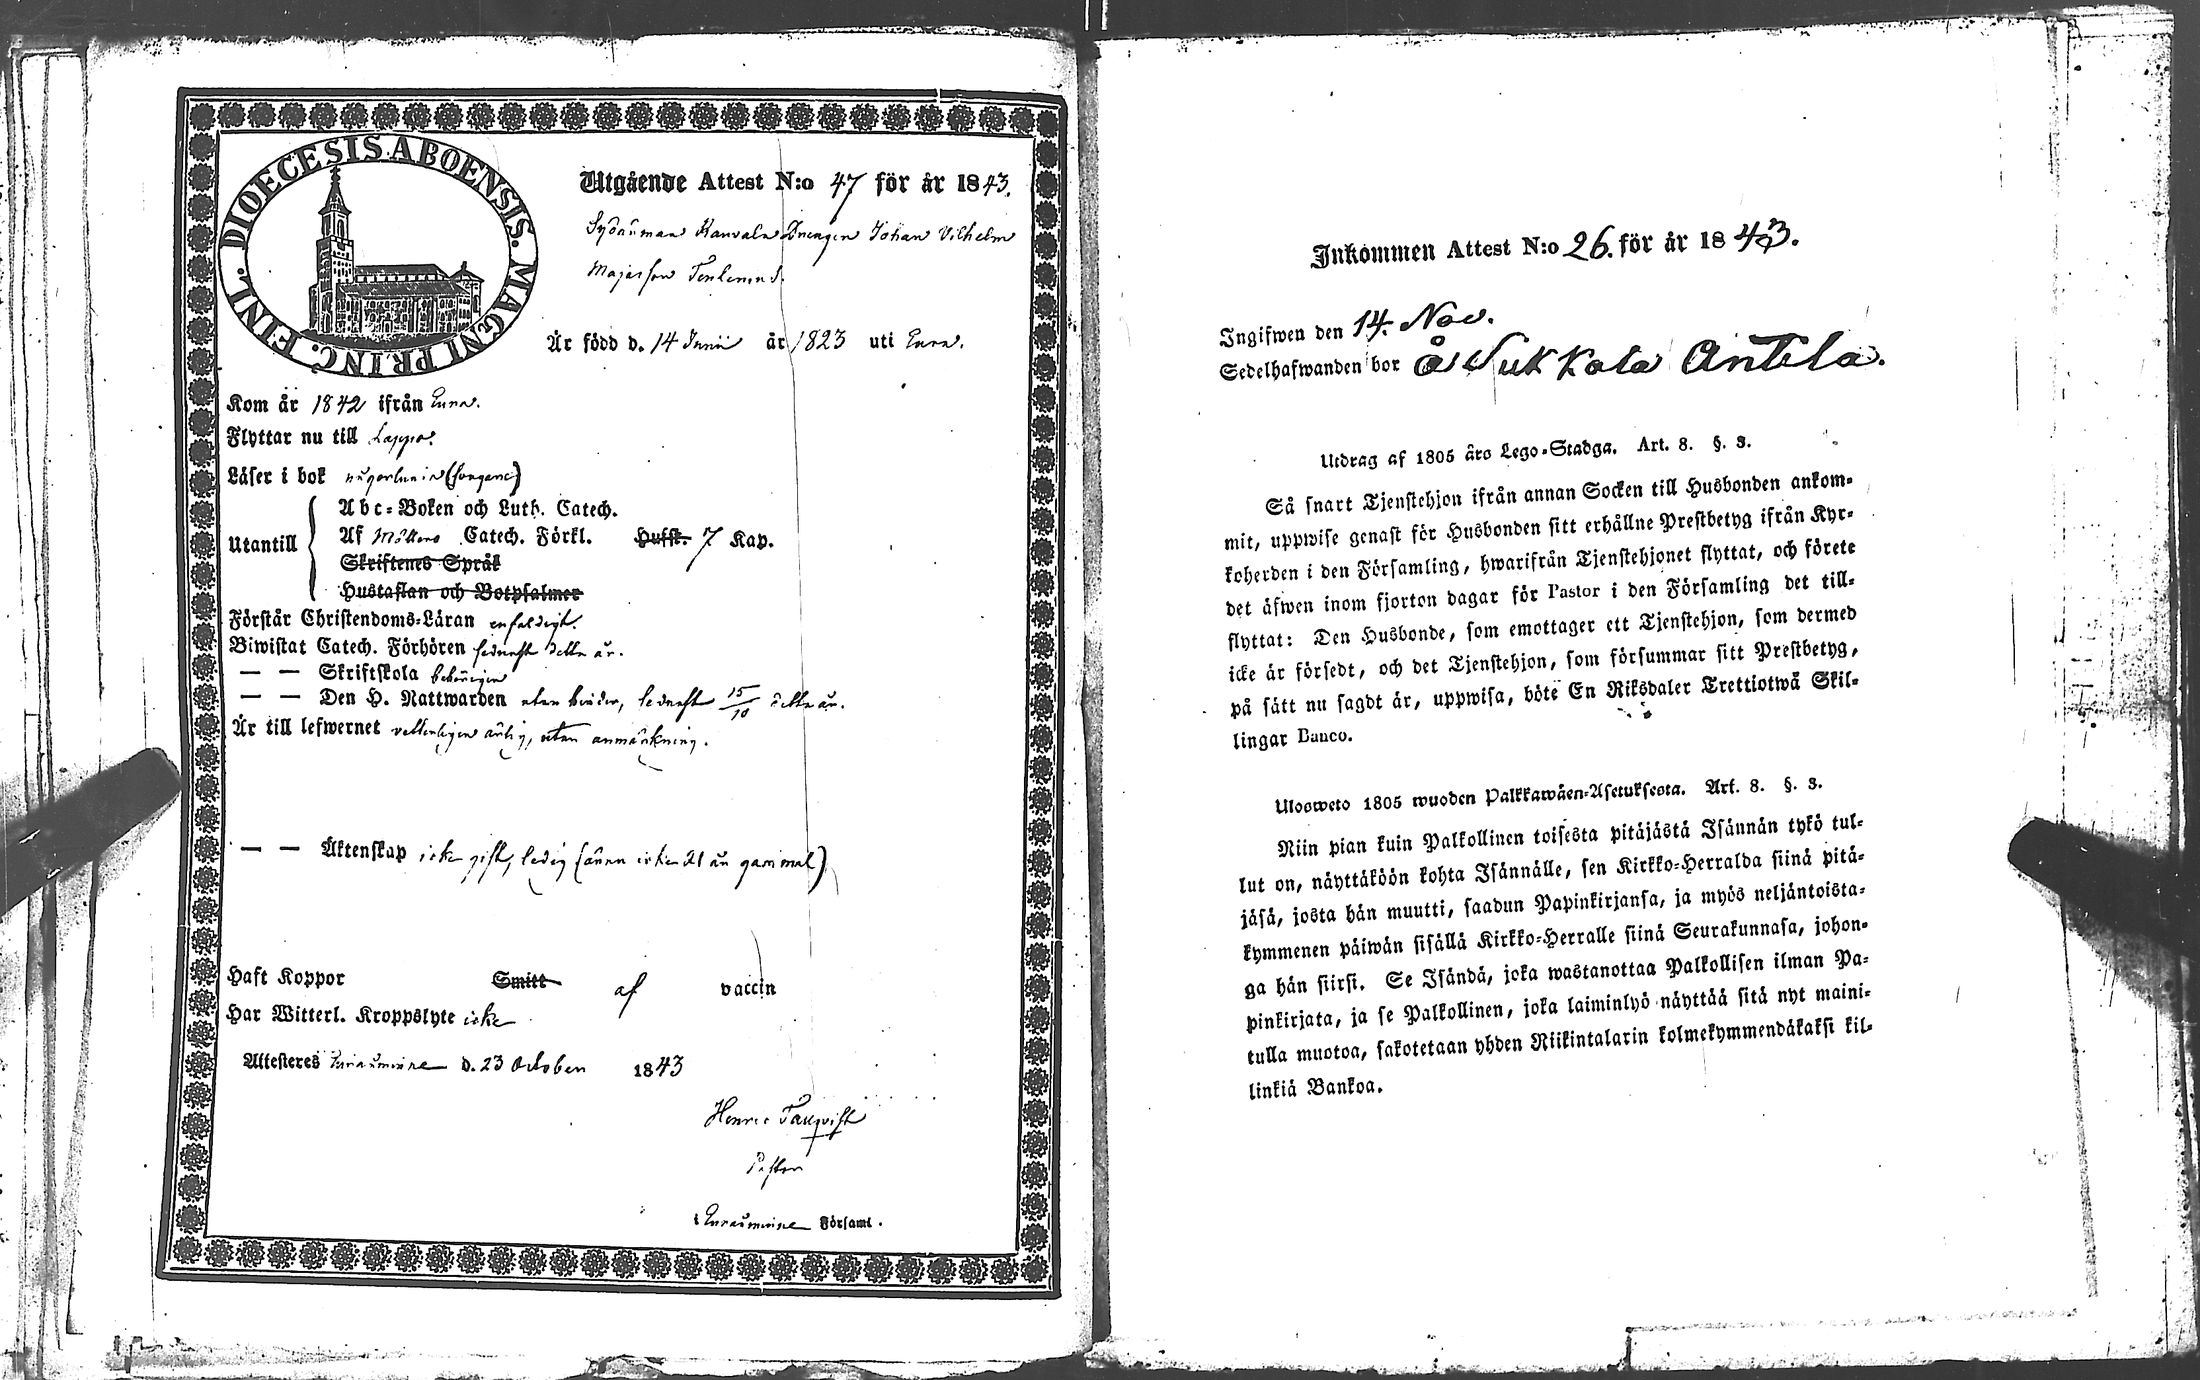 DIOECESIS ABOENSIS. MAGNI PRINC. FINL.
Utgående Attest N:o 47 för år 1843.
Drengen Johan Vilhelm
Är född d. 14 Junii år 1823 uti Eura.
Kom år 1842 ifrån Eura.
Flyttar nu till Lappo.
Läser i bok
Utantill
Abc-Boken och Luth. Catech.
Af Möllers Catech. Förkl. Hufst. 7 Kap.
Skriftenes Språk
Hustaflan och Botpsalmer
Förstår Christendoms-Läran enfaldigt.
Biwistat Catech. Förhören sednast detta år.
— — Skriftskola behörigen
— — Den H. Nattwarden utan hinder, sednast 15/10 detta år.
Är till lefwernet veterligen ärlig, utan anmärkning.
— — Äktenskap icke gift, ledig
Haft Koppor Smitt af vaccin
Har Witterl. Kroppslyte icke
Attesteres Euraåminne d. 23 October 1843
Henric
Pastor
i Euraåminne Församl.
Inkommen Attest N:o 26. för år 1843.
Ingifwen den 14. Nov.
Sedelhafwanden bor å Sukkala Anttila.
Utdrag af 1805 års Lego-Stadga. Art. 8. §. 3.
Så snart Tjenstehjon ifrån annan Socken till Husbonden ankom-
mit, uppwise genast för Husbonden sitt erhållne Prestbetyg ifrån Kyr-
koherden i den Församling, hwarifrån Tjenstehjonet flyttat, och förete
det äfwen inom fjorton dagar för Pastor i den Församling det till-
flyttat: Den Husbonde, som emottager ett Tjenstehjon, som dermed
icke är försedt, och det Tjenstehjon, som försummar sitt Prestbetyg,
på sätt nu sagdt är, uppwisa, böte En Riksdaler Trettiotwå Skil-
lingar Banco.
Ulosweto 1805 wuoden Palkkawäen-Asetuksesta. Art. 8. §. 3.
Niin pian kuin Palkollinen toisesta pitäjästä Isännän tykö tul-
lut on, näyttäköön kohta Isännälle, sen Kirkko-Herralda siinä pitä-
jäsä, josta hän muutti, saadun Papinkirjansa, ja myös neljäntoista-
kymmenen päiwän sisällä Kirkko-Herralle siinä Seurakunnasa, johon-
ga hän siirsi. Se Isändä, joka wastanottaa Palkollisen ilman Pa-
pinkirjata, ja se Palkollinen, joka laiminlyö näyttää sitä nyt maini-
tulla muotoa, sakotetaan yhden Riikintalarin kolmekymmendäkaksi kil-
linkiä Bankoa.